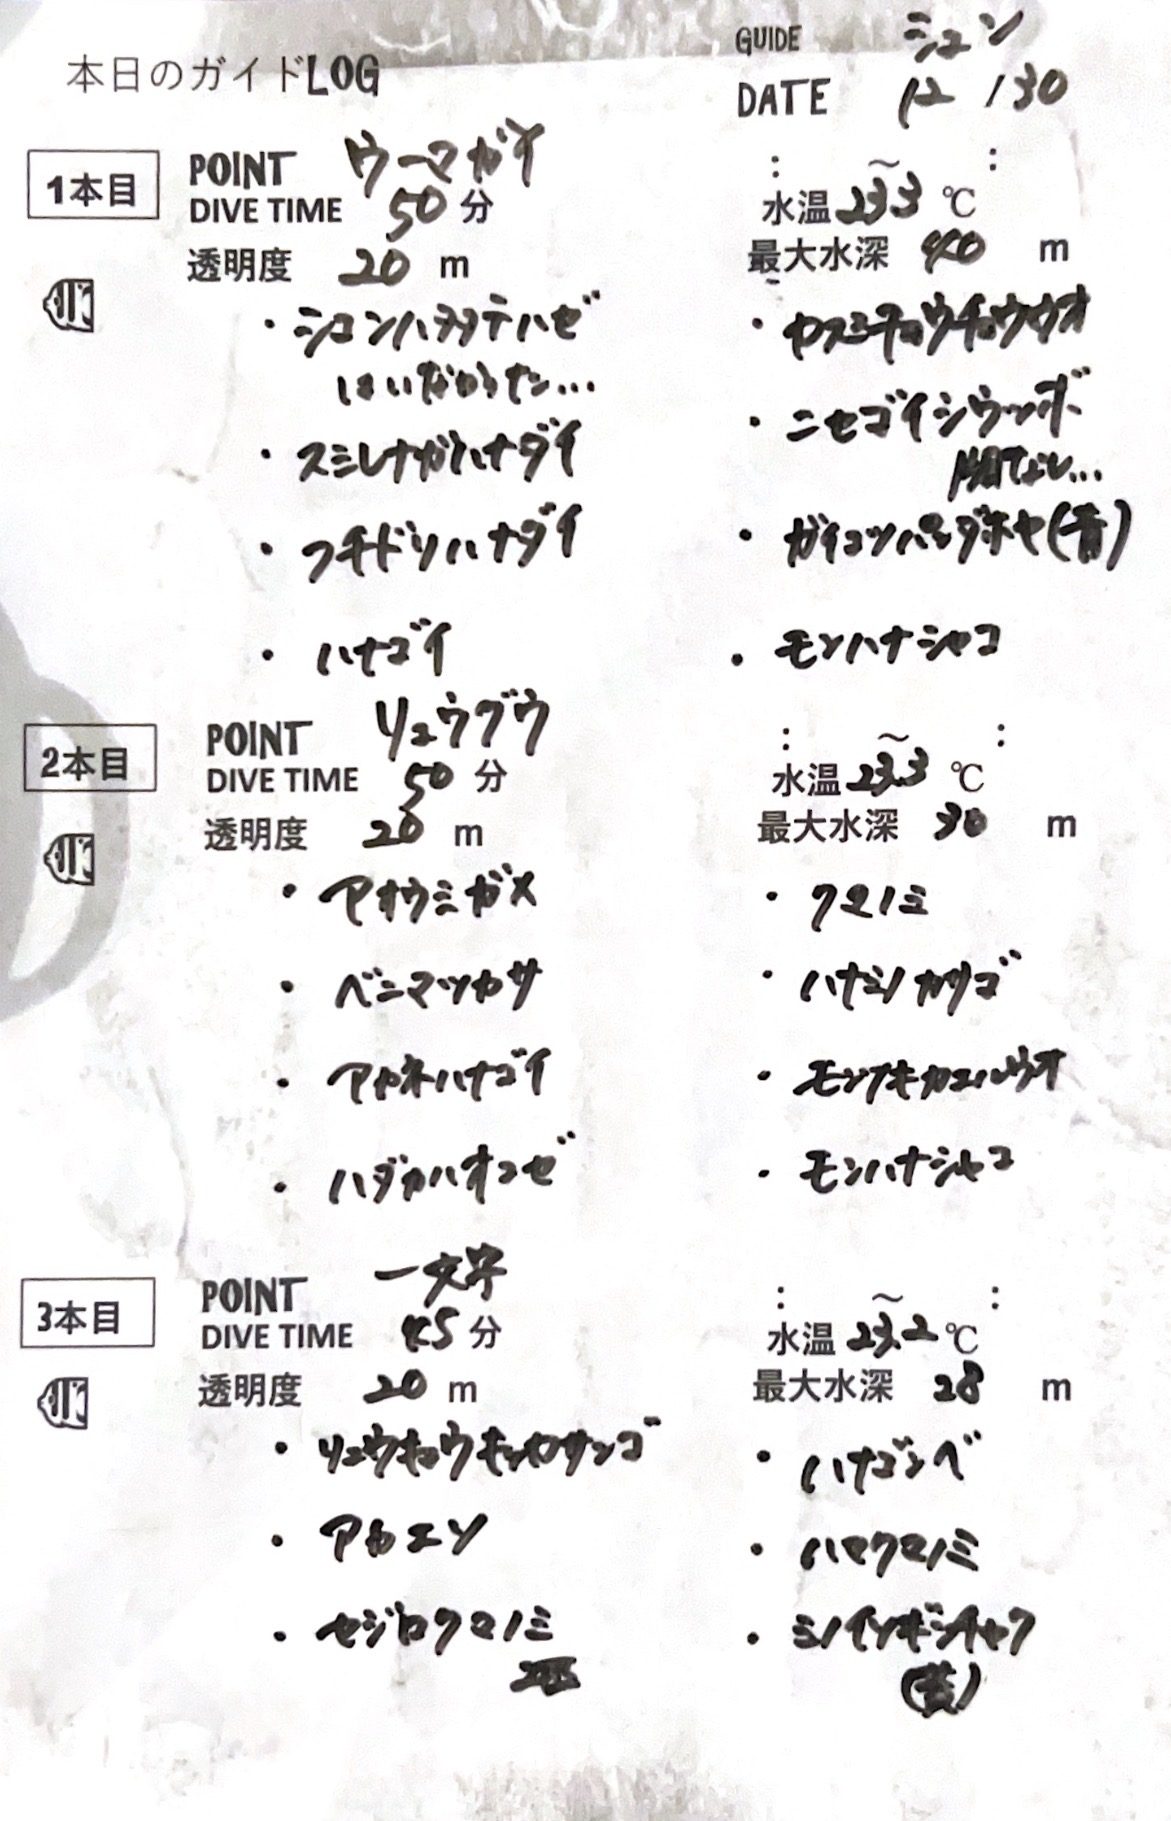 本日のガイドLOG
GUIDE シュン
DATE 12/30
1本目
POINT ウーマガイ
: ～ :
DIVE TIME 50 分
水温 23.3 ℃
透明度 20 m
最大水深 40 m
・シコンハタタテハゼ
はいなかった…
・スミレナガハナダイ
・フチドリハナダイ
・ハナゴイ
・ヤスミチョウチョウウオ
・ニセゴイシウツボ
・ガイコツパンダホヤ(青)
・モンハナシャコ
2本目
POINT リュウグウ
: ～ :
DIVE TIME 50 分
水温 23.3 ℃
透明度 20 m
最大水深 30 m
・アオウミガメ
・ベニマツカサ
・アカネハナゴイ
・ハダカハオコゼ
・クマノミ
・ハナミノカサゴ
・モンツキカエルウオ
・モンハナシャコ
3本目
POINT 一文字
: ～ :
DIVE TIME 45 分
水温 23.2 ℃
透明度 20 m
最大水深 28 m
・リュウキュウキッカサンゴ
・アカエソ
・セジロクマノミ
・ハナゴンベ
・ハマクマノミ
・ミノイソギンチャク
(黄)